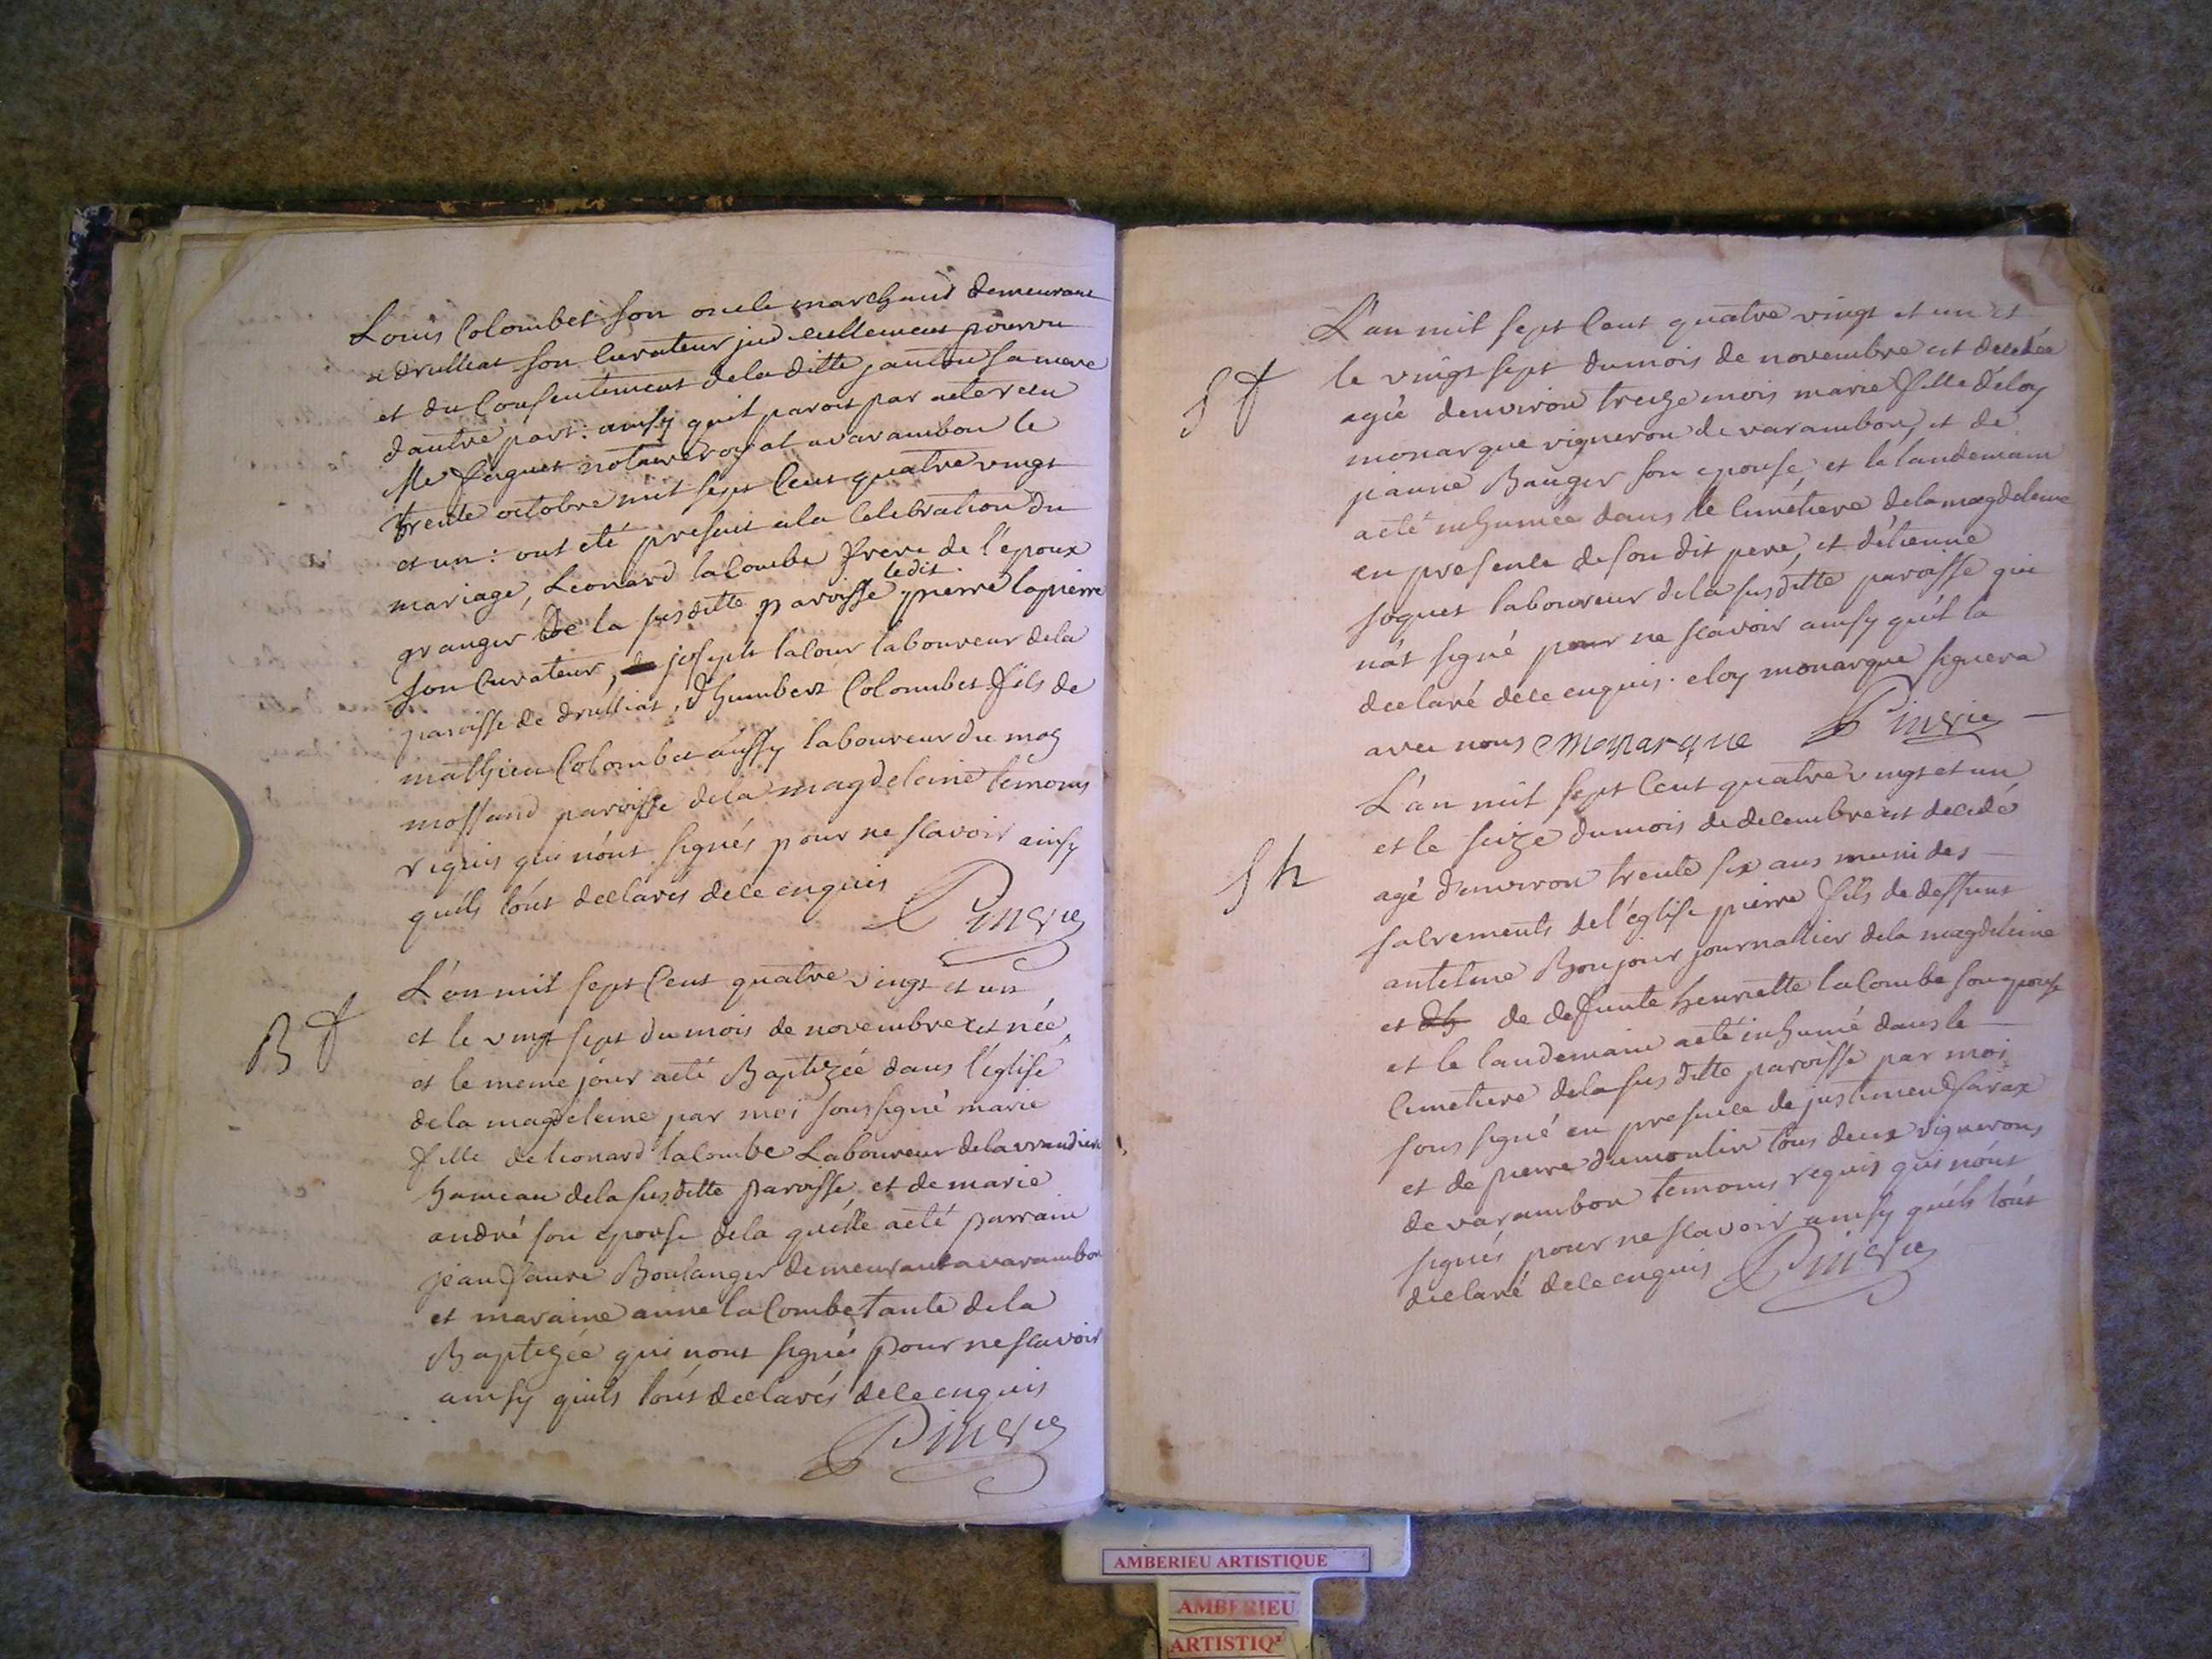 Louis Colombet son oncle marchand demeurant
a druillat son Curateur judiciellement pourvu
et du Consentement de la ditte janton sa mere
d'autre part: ainsy quil paroit par acte reçu
Me notaire royal a varambon le
trente octobre mil sept Cent quatre vingt
et un: ont eté presents a la Celebration du
mariage, Leonard laCombe frere de l'epoux
granger de la susditte paroisse ledit pierre lapierre
son Curateur, joseph lacour laboureur de la
paroisse de druillat, d'humbert Colombet fils de
mathieu Colombet aussy laboureur du mas
mossand paroisse de la magdeleine temoins
requis qui n'ont signés pour ne sçavoir ainsy
quils l'ont declarés de ce enquis
Pinerie
B f
L'an mil sept Cent quatre vingt et un
et le vingt sept du mois de novembre est née,
et le meme jour a eté Baptizée dans l'eglise
de la magdeleine par moi soussigné marie
fille de leonard laCombe Laboureur de la
hameau de la susditte paroisse et de marie
andré son epouse de la quelle a eté parrain
jean faure Boulanger demeurant a varambon
et maraine anne laCombe tante de la
Baptizée qui n'ont signés pour ne sçavoir
ainsy quils l'ont declarés de ce enquis
Pinerie
S f
L'an mil sept Cent quatre vingt et un et
le vingt sept du mois de novembre est decedée
agée d'environ treize mois marie fille d'eloy
monarque vigneron de varambon, et de
jeanne Bauger son epouse, et le landemain
a eté inhumée dans le Cimetiere de la magdeleine
en presence de son dit pere, et d'etienne
foquet laboureur de la susditte paroisse qui
n'at signé pour ne sçavoir ainsy qu'il la
declaré de ce enquis. eloy monarque signera
avec nous E monarque Pinerie
S h
L'an mil sept Cent quatre vingt et un
et le seize du mois de decembre est decedé
agé d'environ trente six ans muni des
sacrements de l'eglise pierre fils de deffunt
antelme Bonjour journallier de la magdeleine
et de defunte henriette laCombe son epouse
et le landemain a eté inhumé dans le
Cimetiere de la susditte paroisse par moi
sous signé en presence de just
et de pierre dumoulin tous deux vignerons
de varambon temoins requis qui n'ont
signés pour ne sçavoir ainsy qu'ils l'ont
declaré de ce enquis Pinerie
AMBERIEU ARTISTIQUE
AMBERIEU
ARTISTIQ